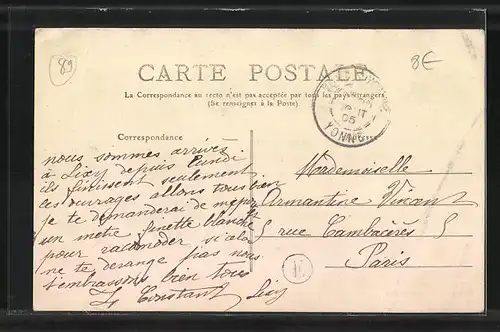 89
8€
CARTE POSTALE
La Correspondance au recto n'est pas acceptée par tous les pays étrangers
(Se renseigner à la Poste)
05
YONNE
Correspondance
nous sommes arrivés
à Lixy depuis lundi
ils finissent seulement
les ouvrages allons tous bien
je te demanderai de
un mètre finette blanche
pour racomoder, si cela
ne te derange pas nous
t'embrassons bien tous
Constant Lixy
Mademoiselle
Armantine Vincent
5 rue Cambacérès 5
Paris